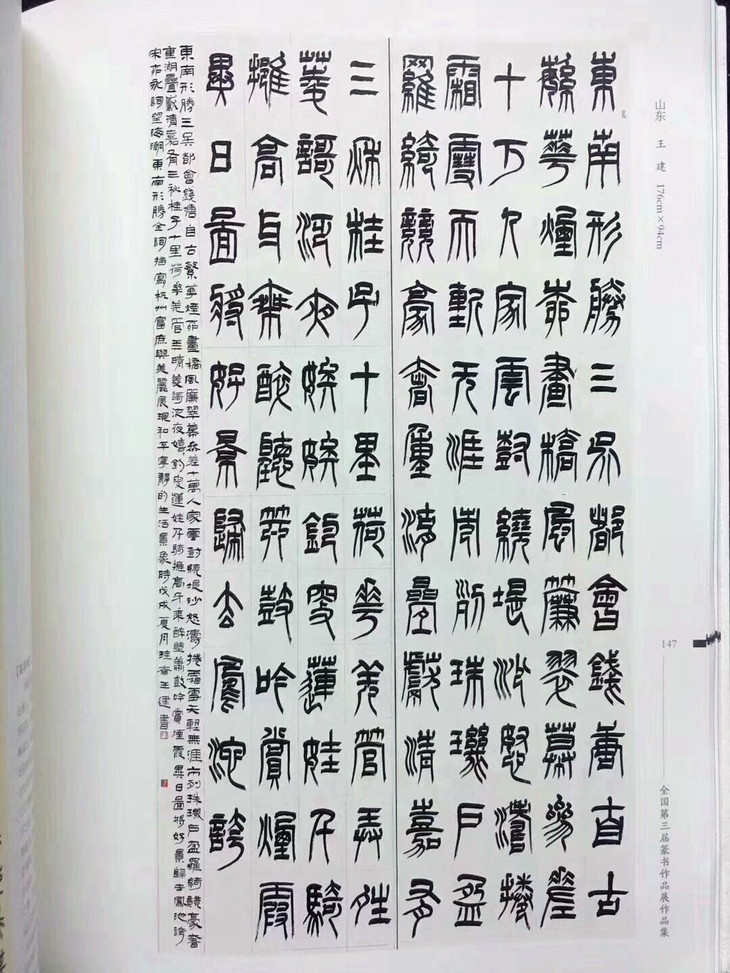 山东 王建 176cm×94cm
東南形勝三吳都會錢唐自古
繁華煙柳畫橋風簾翠幕參差
十万人家雲樹繞堤沙怒濤捲
霜雪天塹无涯市列珠璣戶盈
羅綺競豪奢重湖疊巘清嘉有
三秋桂子十里荷花羌管弄晴
菱歌泛夜嬉嬉釣叟蓮娃千騎
擁高牙乘醉聽簫鼓吟賞煙霞
異日圖將好景歸去鳳池誇
東南形勝三吳都會錢塘自古繁華煙柳畫橋風簾翠幕參差十萬人家雲樹繞堤沙怒濤捲霜雪天塹無涯市列珠璣戶盈羅綺競豪奢
重湖疊巘清嘉有三秋桂子十里荷花羌管弄晴菱歌泛夜嬉釣叟蓮娃千騎擁高牙乘醉聽簫鼓吟賞煙霞異日圖將好景歸去鳳池誇
宋柳永詞望海潮東南形勝全詞描寫杭州富庶與美麗展現和平寧靜的生活景象時戊戌夏月王建書
147
全国第三届篆书作品展作品集